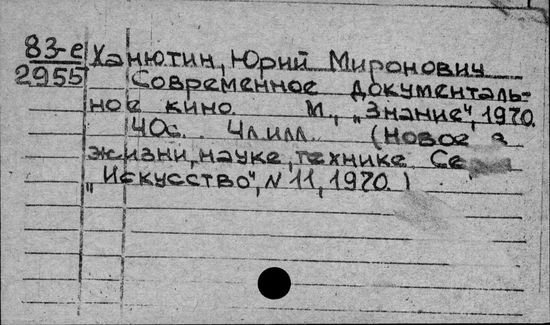 83-е Ханютин, Юрий Миронович
2955 Современное документаль-
ное кино. М., „Знание", 1970.
40с. 4л.илл. (Новое в
жизни, науке, технике. Серия
„Искусство", N 11, 1970.)